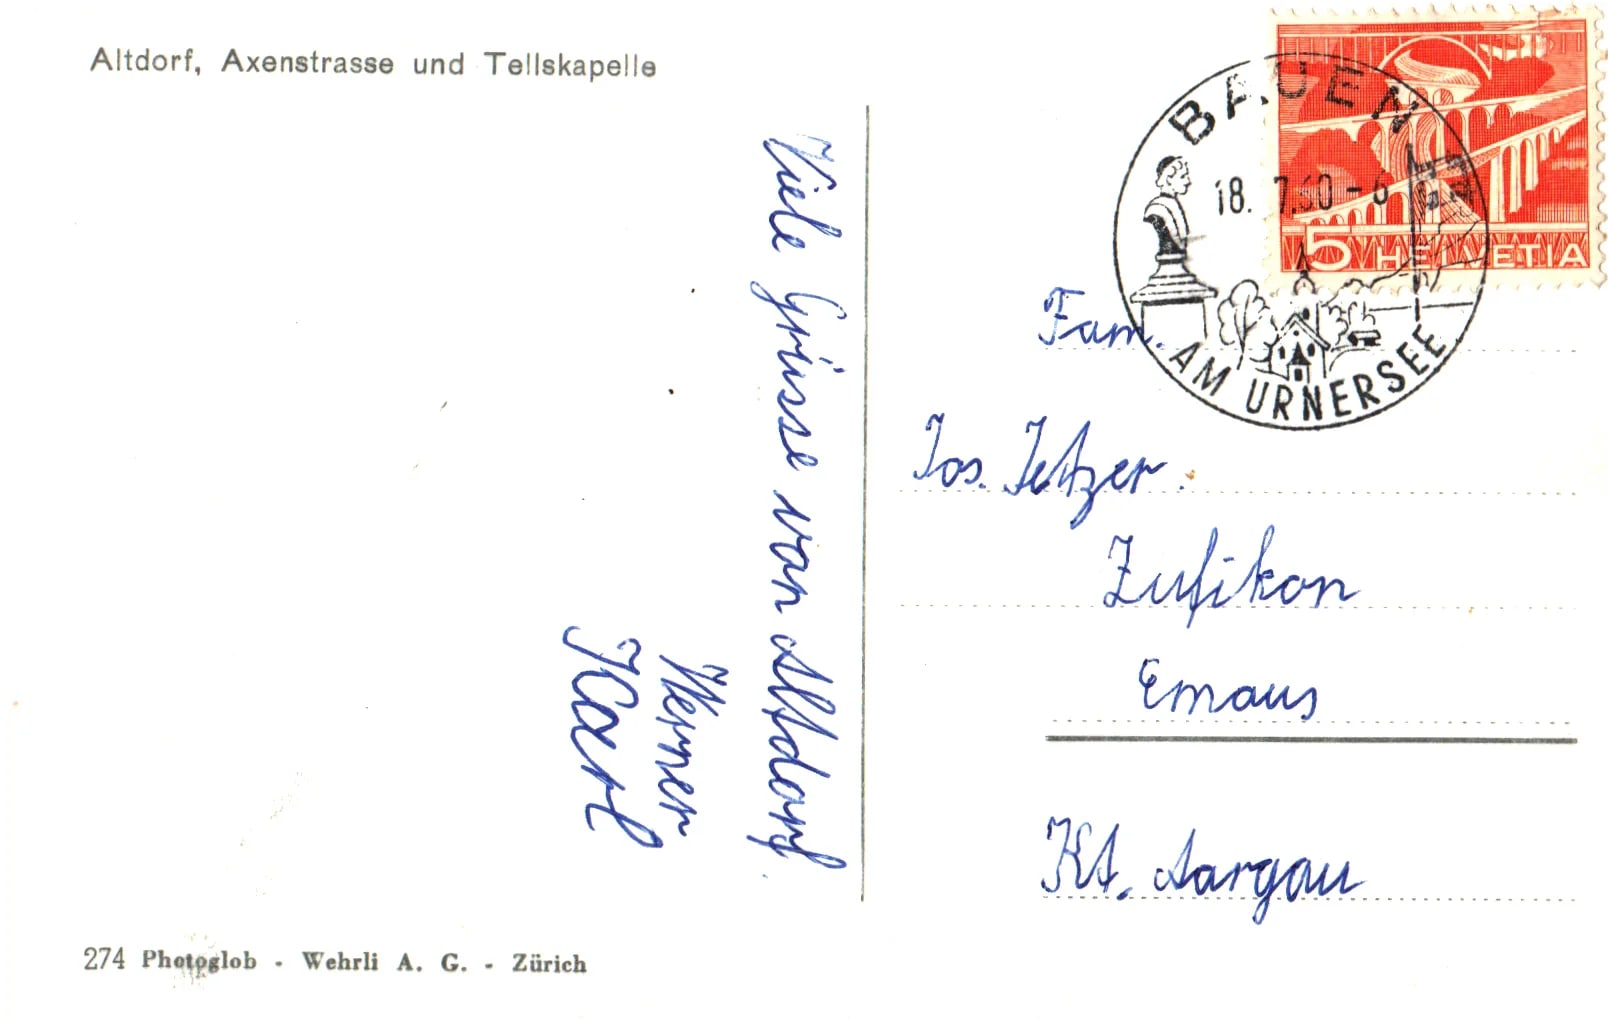 Altdorf, Axenstrasse und Tellskapelle
Viele Grüsse von Altdorf.
Werner
Karl
274 Photoglob - Wehrli A. G. - Zürich
BAUEN
18. 7.60 - 6
AM URNERSEE
5 HELVETIA
Fam.
Jos. Jetzer.
Zufikon
Emaus
Kt. Aargau